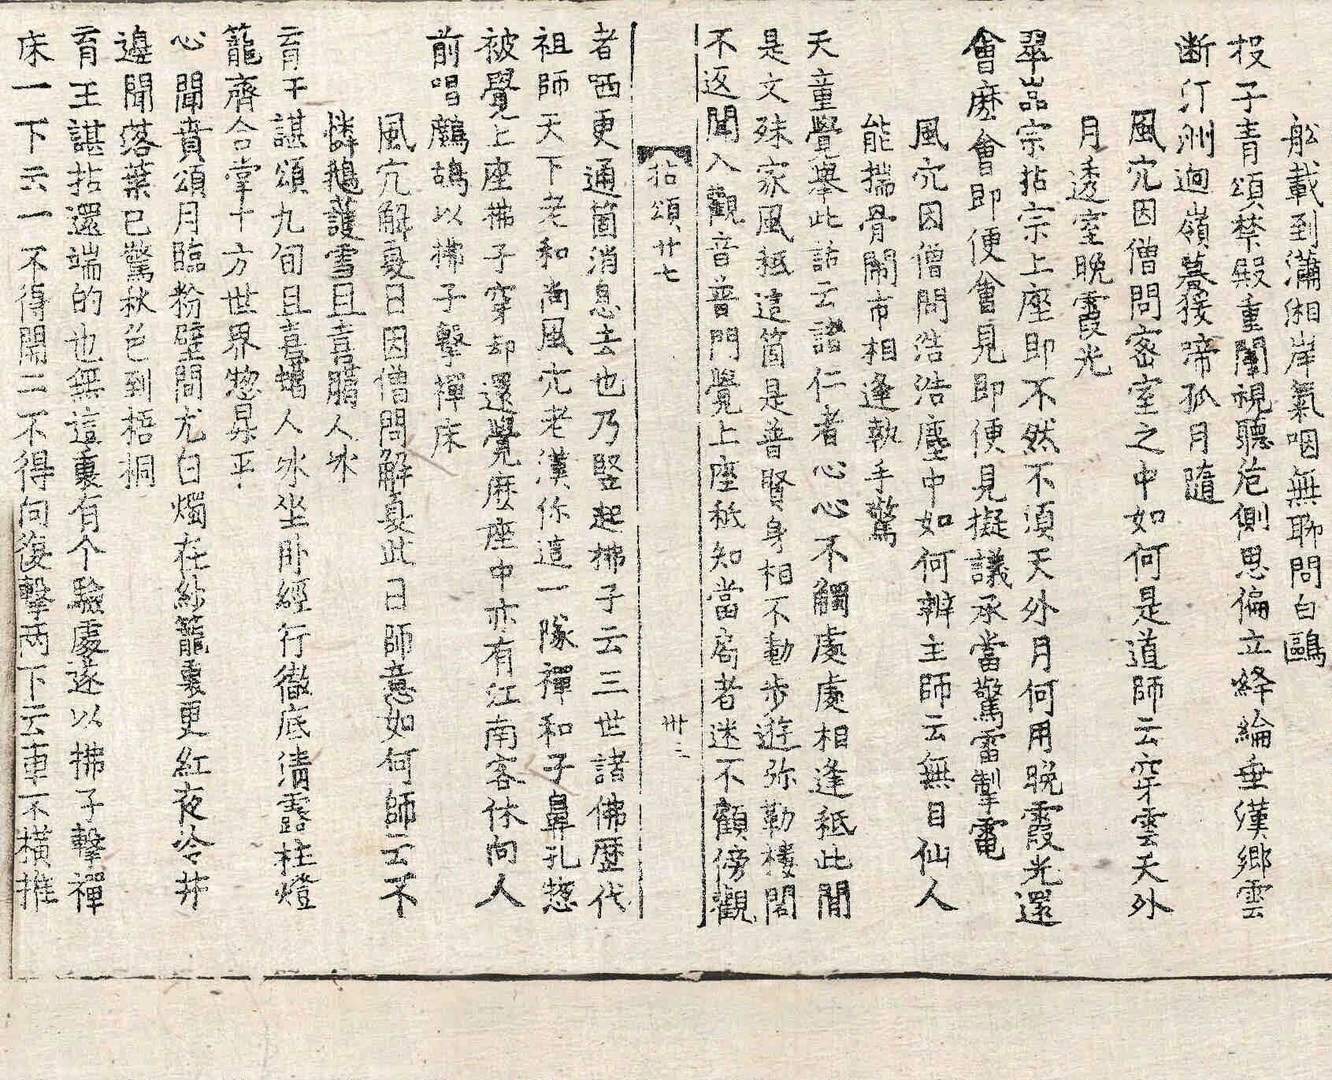 舩載到瀟湘岸氣咽無聊問白鷗
投子青頌禁殿重闈視聽危側思偏立絳綸垂漢鄉雲
断汀洲逈嶺暮猿啼孤月隨
風穴因僧問密室之中如何是道師云穿雲天外
月透室晚霞光
翠嵓宗拈宗上座即不然不湏天外月何用晚霞光還
會麽會即便會見即便見擬議承當驚雷掣電
風穴因僧問浩浩塵中如何辨主師云無目仙人
能揣骨閙市相逢執手驚
天童覺舉此話云諸仁者心心不觸處處相逢秪此間
是文殊家風秪這箇是普賢身相不動步遊弥勒楼閣
不返聞入觀音普門覺上座秪知當局者迷不顧傍觀
拈頌廿七 卅二
者哂更通箇消息去也乃竪起拂子云三世諸佛歷代
祖師天下老和尚風穴老漢你這一隊禪和子鼻孔惣
被覺上座拂子穿却還覺麽座中亦有江南客休向人
前唱鷓鴣以拂子擊禪床
風穴解夏日因僧問解夏此日師意如何師云不
憐鵝護雪且喜臈人冰
育王諶頌九旬且喜蠟人冰坐卧經行徹底清露柱燈
籠齊合掌十方世界惣昇平
心聞賁頌月臨粉壁間尤白燭在紗籠裏更紅夜冷井
邊聞落葉已驚秋色到梧桐
育王諶拈還端的也無這裏有个驗處遂以拂子擊禪
床一下云一不得開二不得向復擊两下云車不橫推